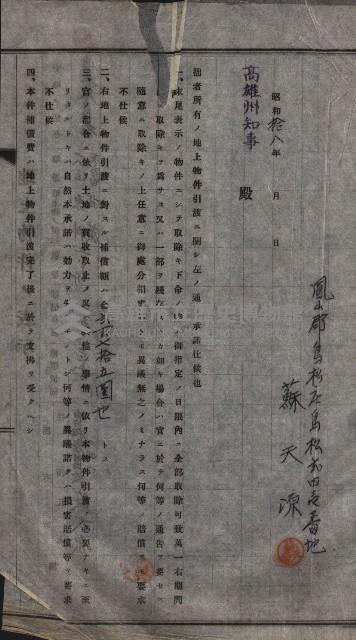 昭和拾八年　月　日
鳳山郡鳥松庄鳥松
蘇天源
高雄州知事　殿
拙者所有ノ地上物件引渡ニ関シ左ノ通リ承諾仕候也
一、末尾表示ノ物件ニシテ取除キ下命ノ御指定ノ日限内ニ全部取除可致萬一右期間
取除キヲ為サス又ハ一部ヲ残カ如キ場合ハ官ニ於テ何等ノ通告ヲ要セス
随意ニ取除キノ上任意ニ御處分相異議無之ノミナラス何等ノ賠償
不仕候
二、右地上物件引渡ニ對スル補償額ハ金拾五圓也トス
三、官ノ都合ニ依リ土地ノ買收取止メ又ハ事情ニ依リ本物件引渡ノ必要ナキニ至
リタルトキハ自然本承諾ハ効力ヲトシ何等ノ異議若クハ損害賠償等ノ要求
不仕候
四、本件補償費ハ地上物件引渡完了後ニ於テ支拂ヲ受クヘシ